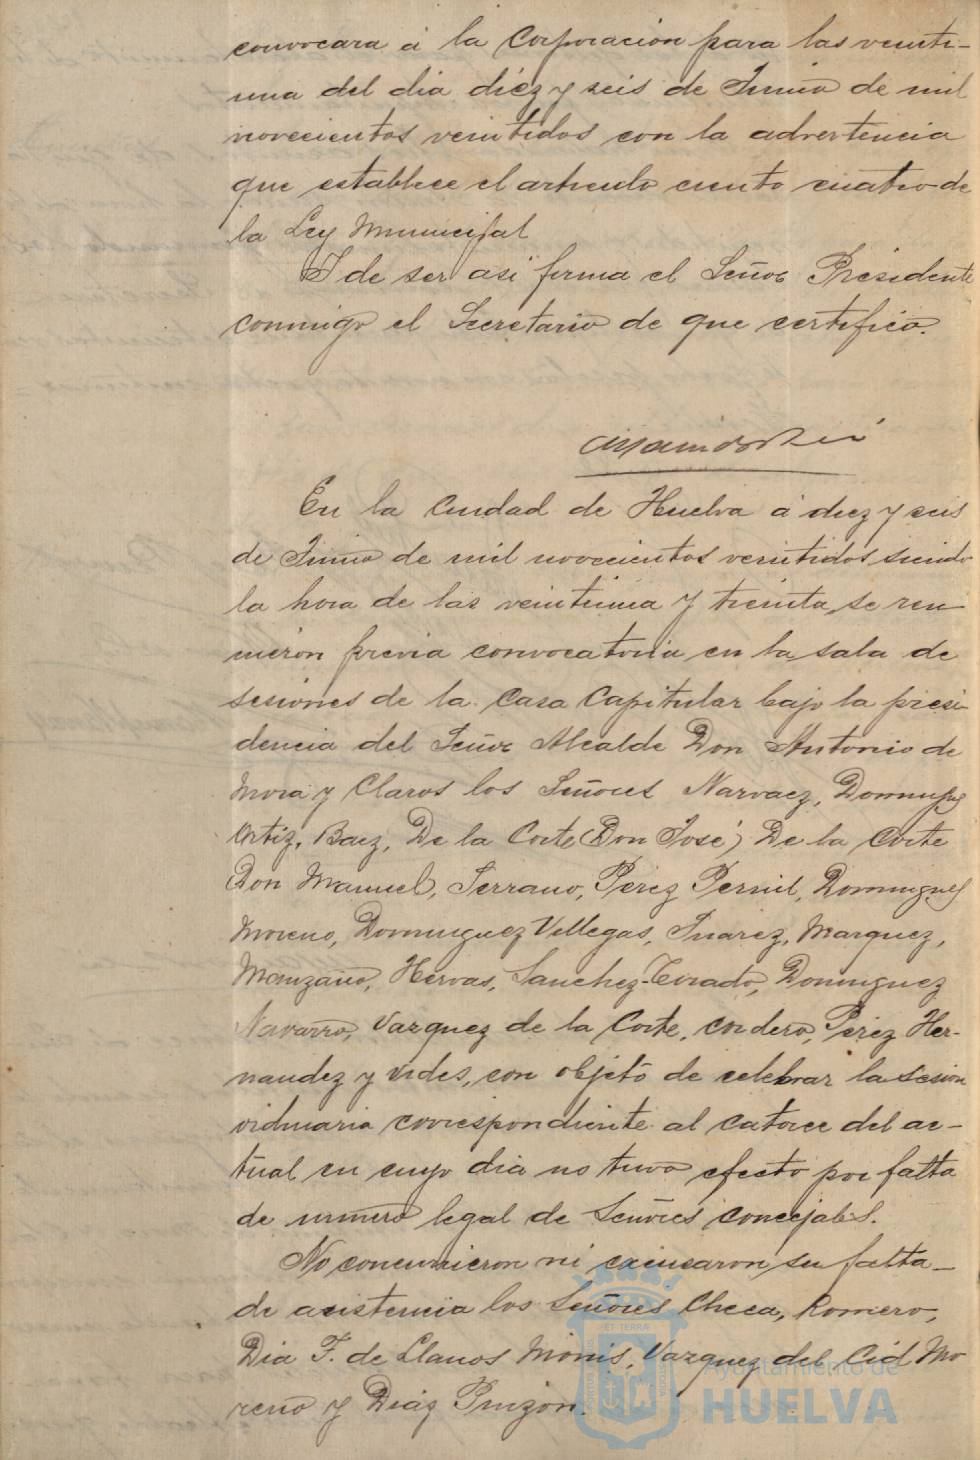 convocara á la Corporación para las veinti-
una del dia diez y seis de Junio de mil
novecientos veintidos con la advertencia
que establece el artículo ciento cuatro de
la Ley Municipal
Y de ser asi firma el Señor Presidente
conmigo el Secretario de que certifico.
En la Ciudad de Huelva á diez y seis
de Junio de mil novecientos veintidos siendo
la hora de las veintiuna y treinta, se reu-
nieron previa convocatoria en la sala de
sesiones de la Casa Capitular bajo la presi-
dencia del Señor Alcalde Don Antonio de
Mora y Claros los Señores Narvaez, Dominguez
Ortiz, Baez, De la Corte (Don José) De la Corte
(Don Manuel), Serrano, Pérez Pernil, Dominguez
Moreno, Dominguez Villegas, Suarez, Marquez,
Manzano, Hervas, Sanchez-Tirado, Dominguez
Navarro, Vazquez de la Corte, Cordero, Pérez Her-
nandez y Vides, con objeto de celebrar la sesion
ordinaria correspondiente al catorce del ac-
tual en cuyo dia no tuvo efecto por falta
de número legal de Señores concejales.
No concurrieron ni excusaron su falta
de asistencia los Señores Checa, Romero,
Dia F. de Llanos Monis, Vazquez del Cid Mo-
reno y Diaz Pinzón.
ET TERRAE
Ayuntamiento de
HUELVA